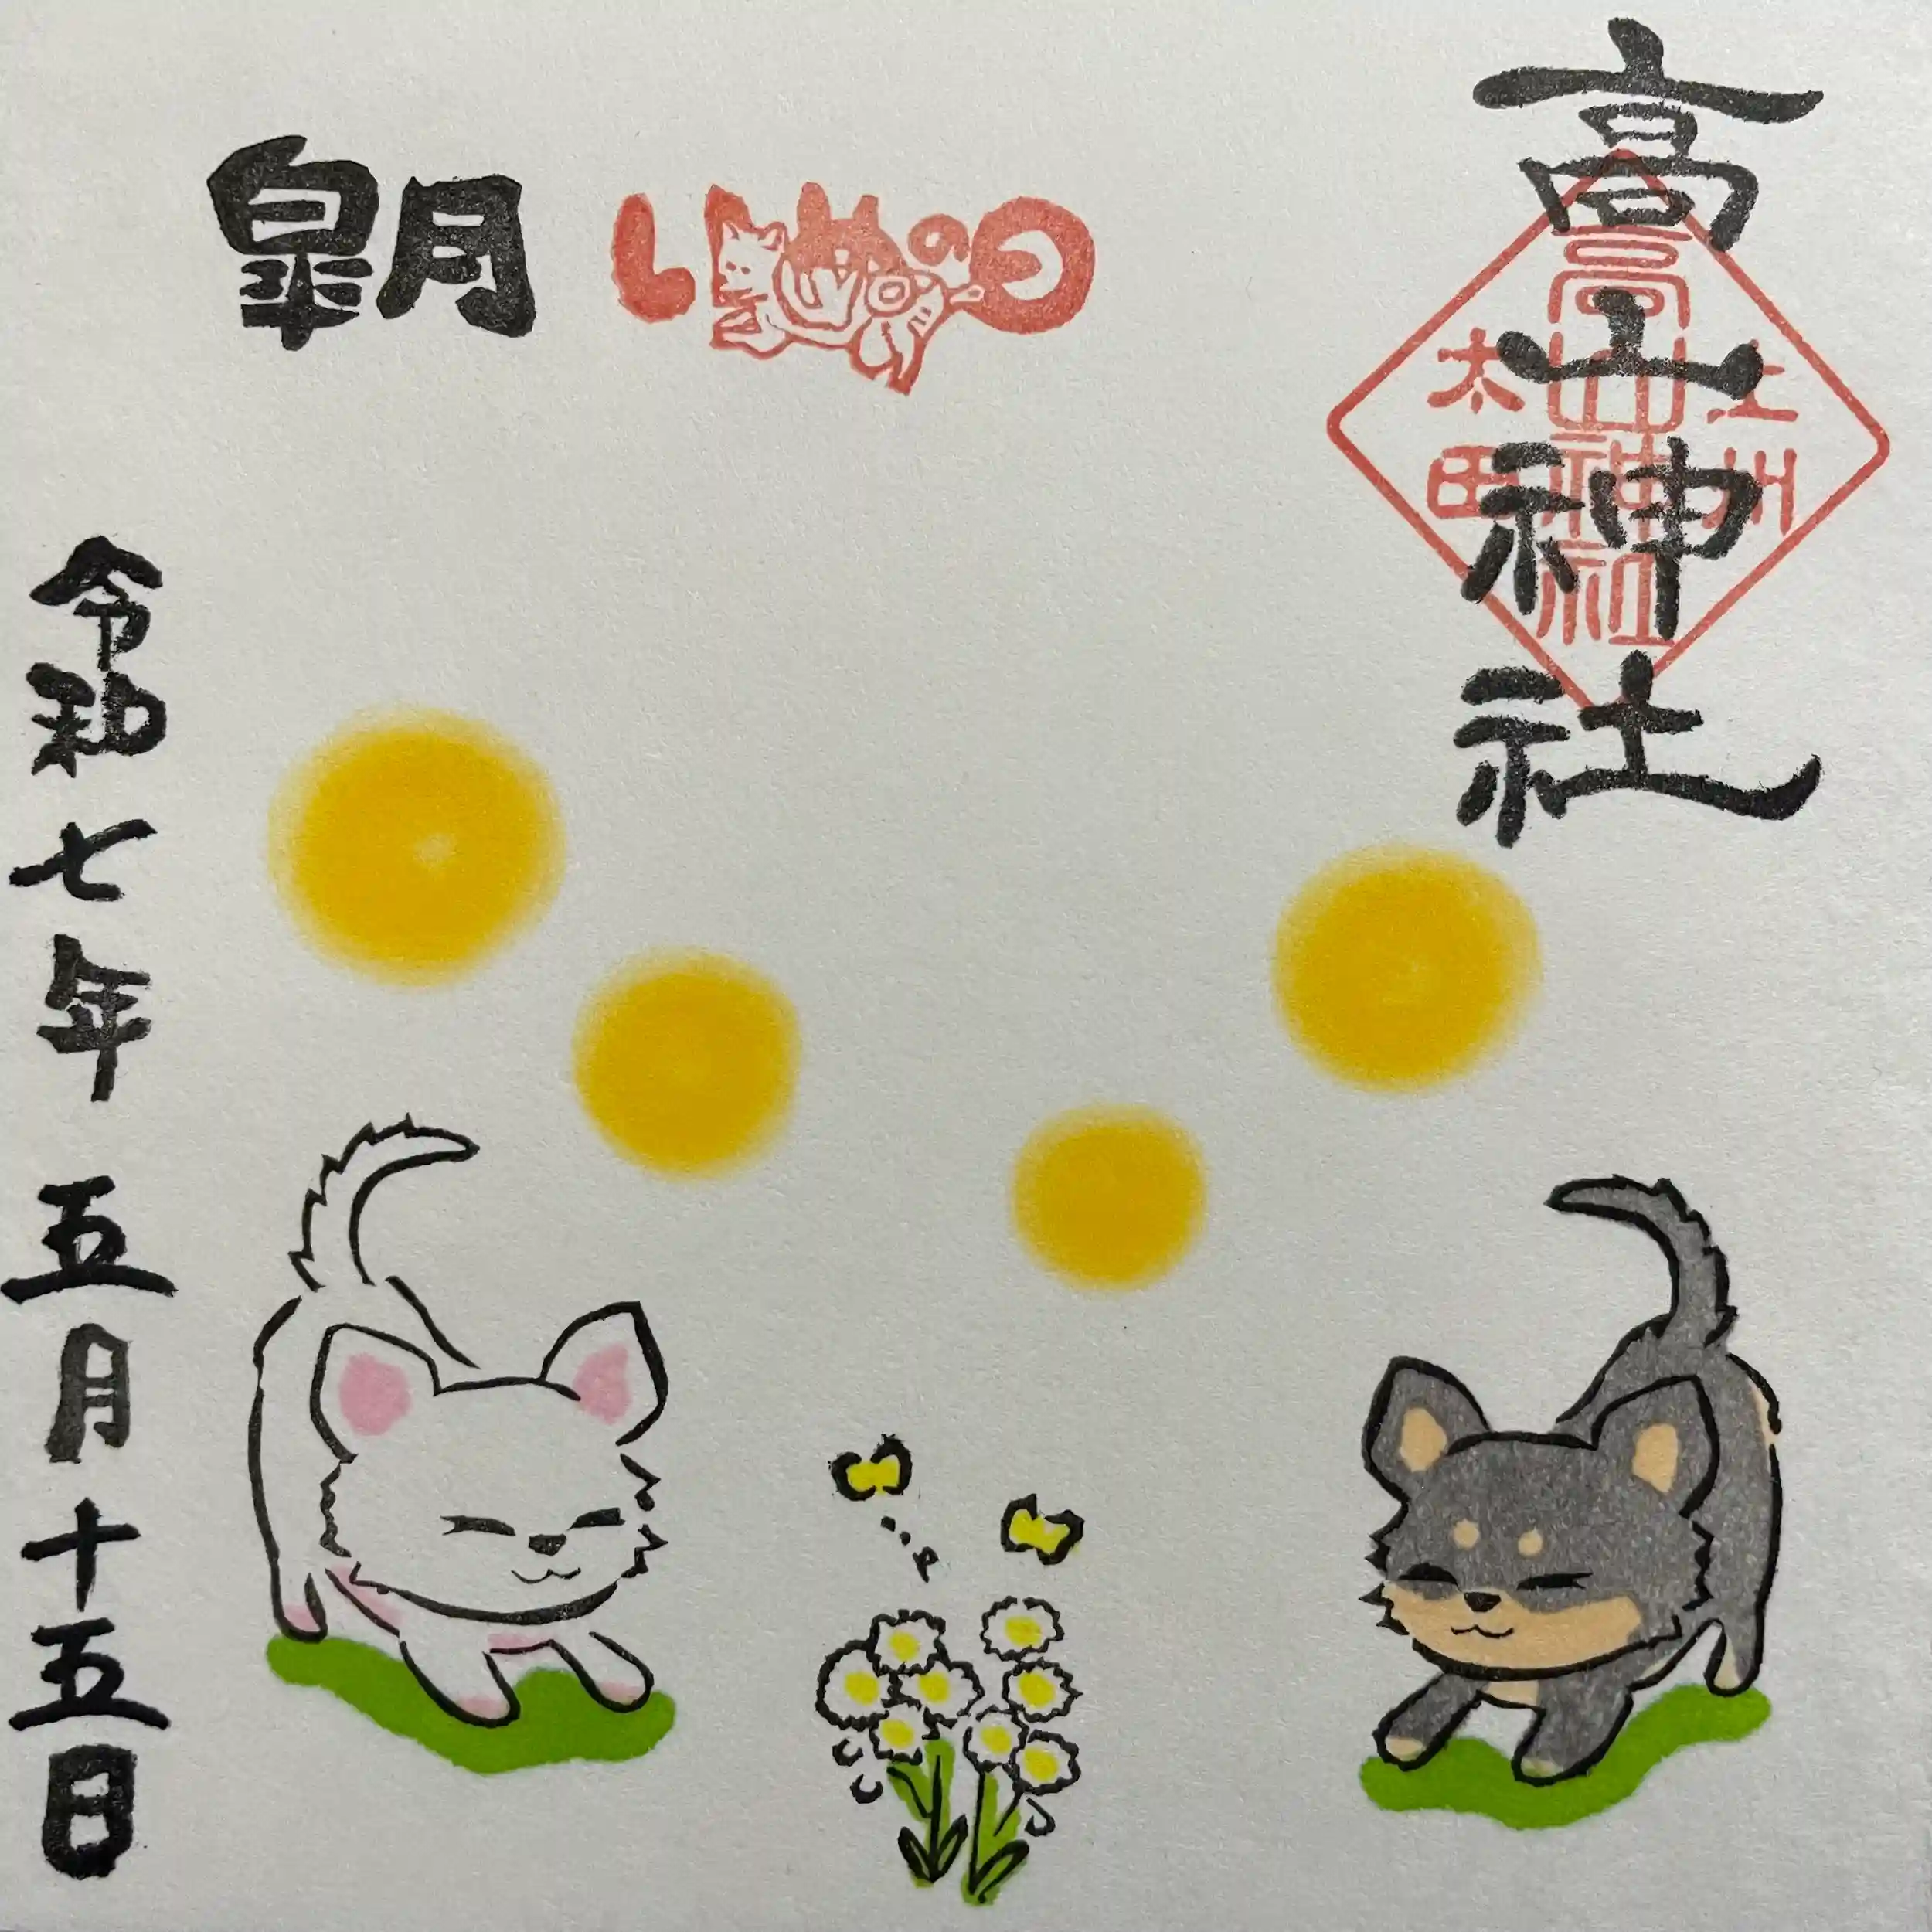 高山神社
上州
高山神社
太田
皐月
令和七年五月十五日